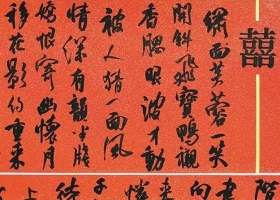 囍
繡面芙蓉一笑
開斜飛寶鴨襯
香腮眼波才動
被人猜一面風
情深有韻半牋
嬌恨寄幽懷月
移花影約重來